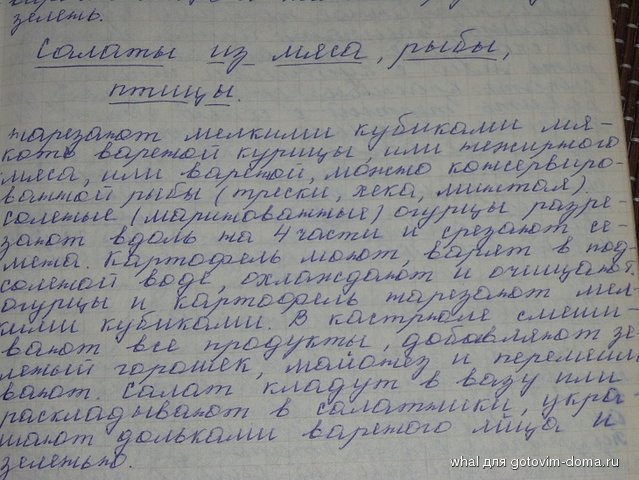 зелень.
Салаты из мяса, рыбы,
птицы.
Нарезают мелкими кубиками мя-
коть вареной курицы или нежирного
мяса, или вареной, можно консервиро-
ванной рыбы (трески, хека, минтая).
Соленые (маринованные) огурцы разре-
зают вдоль на 4 части и срезают се-
мена. Картофель моют, варят в под
соленой воде, охлаждают и очищают.
Огурцы и картофель нарезают мел-
кими кубиками. В кастрюле смеши-
вают все продукты, добавляют зе
леный горошек, майонез и перемеши
вают. Салат кладут в вазу или
раскладывают в салатники, укра-
шают дольками вареного яйца и
зеленью.
whal для gotovim-doma.ru